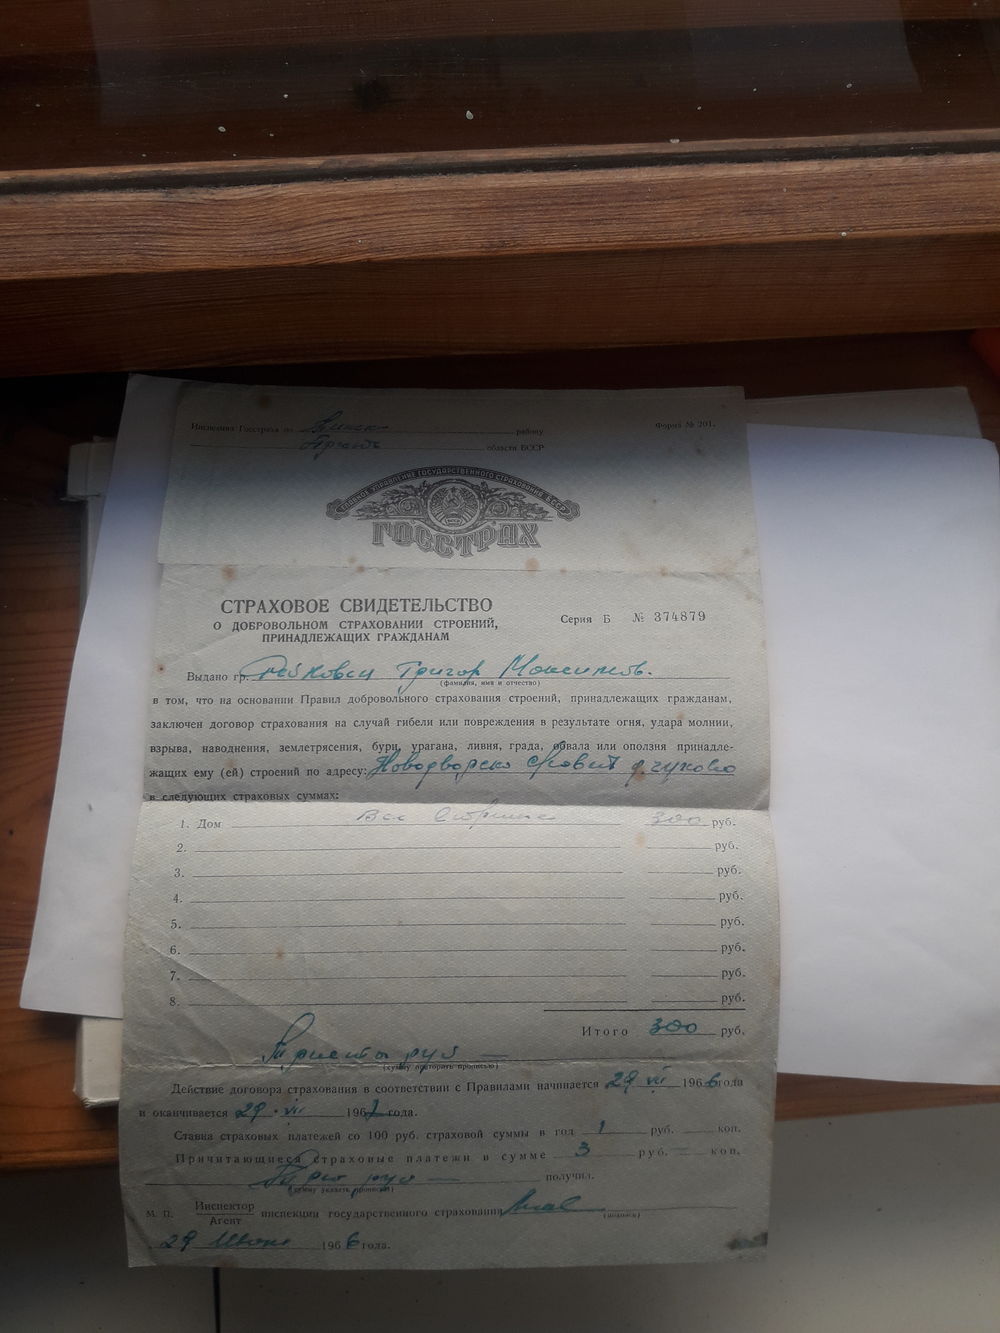 Инспекция Госстраха по Минск району
Форма № 201.
области БССР
ГЛАВНОЕ УПРАВЛЕНИЕ ГОСУДАРСТВЕННОГО СТРАХОВАНИЯ БССР
ГОССТРАХ
СТРАХОВОЕ СВИДЕТЕЛЬСТВО
О ДОБРОВОЛЬНОМ СТРАХОВАНИИ СТРОЕНИЙ,
ПРИНАДЛЕЖАЩИХ ГРАЖДАНАМ
Серия Б № 374879
Выдано гр. Григор Максимов.
(фамилия, имя и отчество)
в том, что на основании Правил добровольного страхования строений, принадлежащих гражданам,
заключен договор страхования на случай гибели или повреждения в результате огня, удара молнии,
взрыва, наводнения, землетрясения, бури, урагана, ливня, града, обвала или оползня принадле-
жащих ему (ей) строений по адресу: Новодворско д.
в следующих страховых суммах:
1. Дом Все 300 руб.
2. руб.
3. руб.
4. руб.
5. руб.
6. руб.
7. руб.
8. руб.
Итого 300 руб.
Триста руб
(сумму повторить прописью)
Действие договора страхования в соответствии с Правилами начинается 29 VII 1966 года
и оканчивается 29 VII 1967 года.
Ставка страховых платежей со 100 руб. страховой суммы в год 1 руб. — коп.
Причитающиеся страховые платежи в сумме 3 руб. — коп.
Три руб — получил.
(сумму указать прописью)
М. П. Инспектор
Агент
инспекции государственного страхования
(подпись)
29 1966 года.